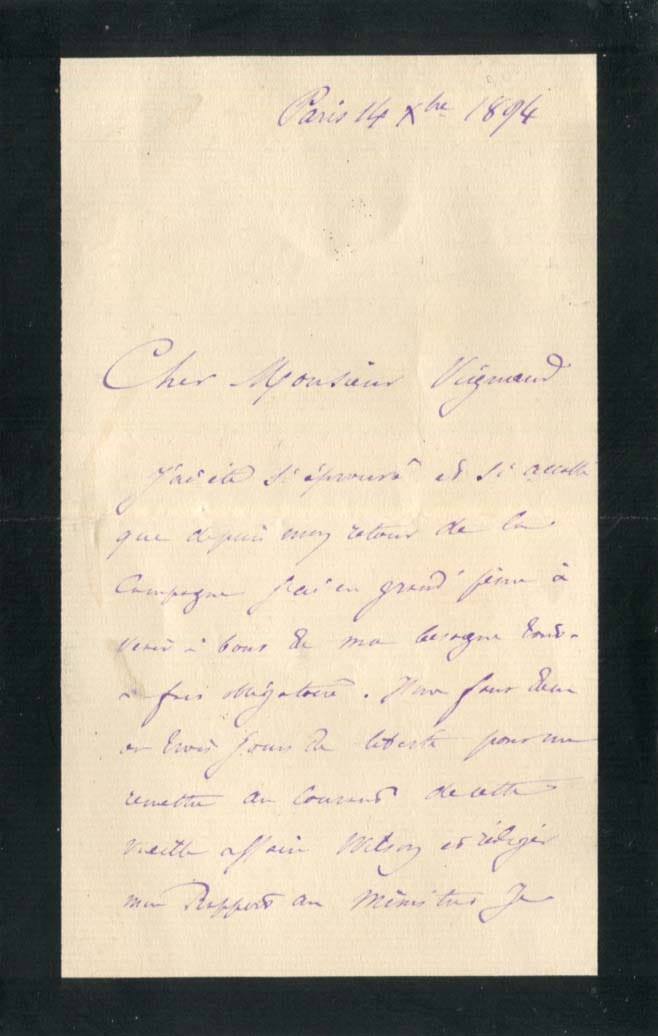 Paris 14 Xbre 1894
Cher Monsieur Vignaud
J'ai été si éprouvé et si accablé
que depuis mon retour de la
Campagne j'ai eu grand' peine à
venir à bout de ma besogne tout-
à fait obligatoire. Il me faut deux
ou trois jours de liberté pour me
remettre au courant de cette
vieille affaire Wilson et rédiger
mon Rapport au Ministre Je